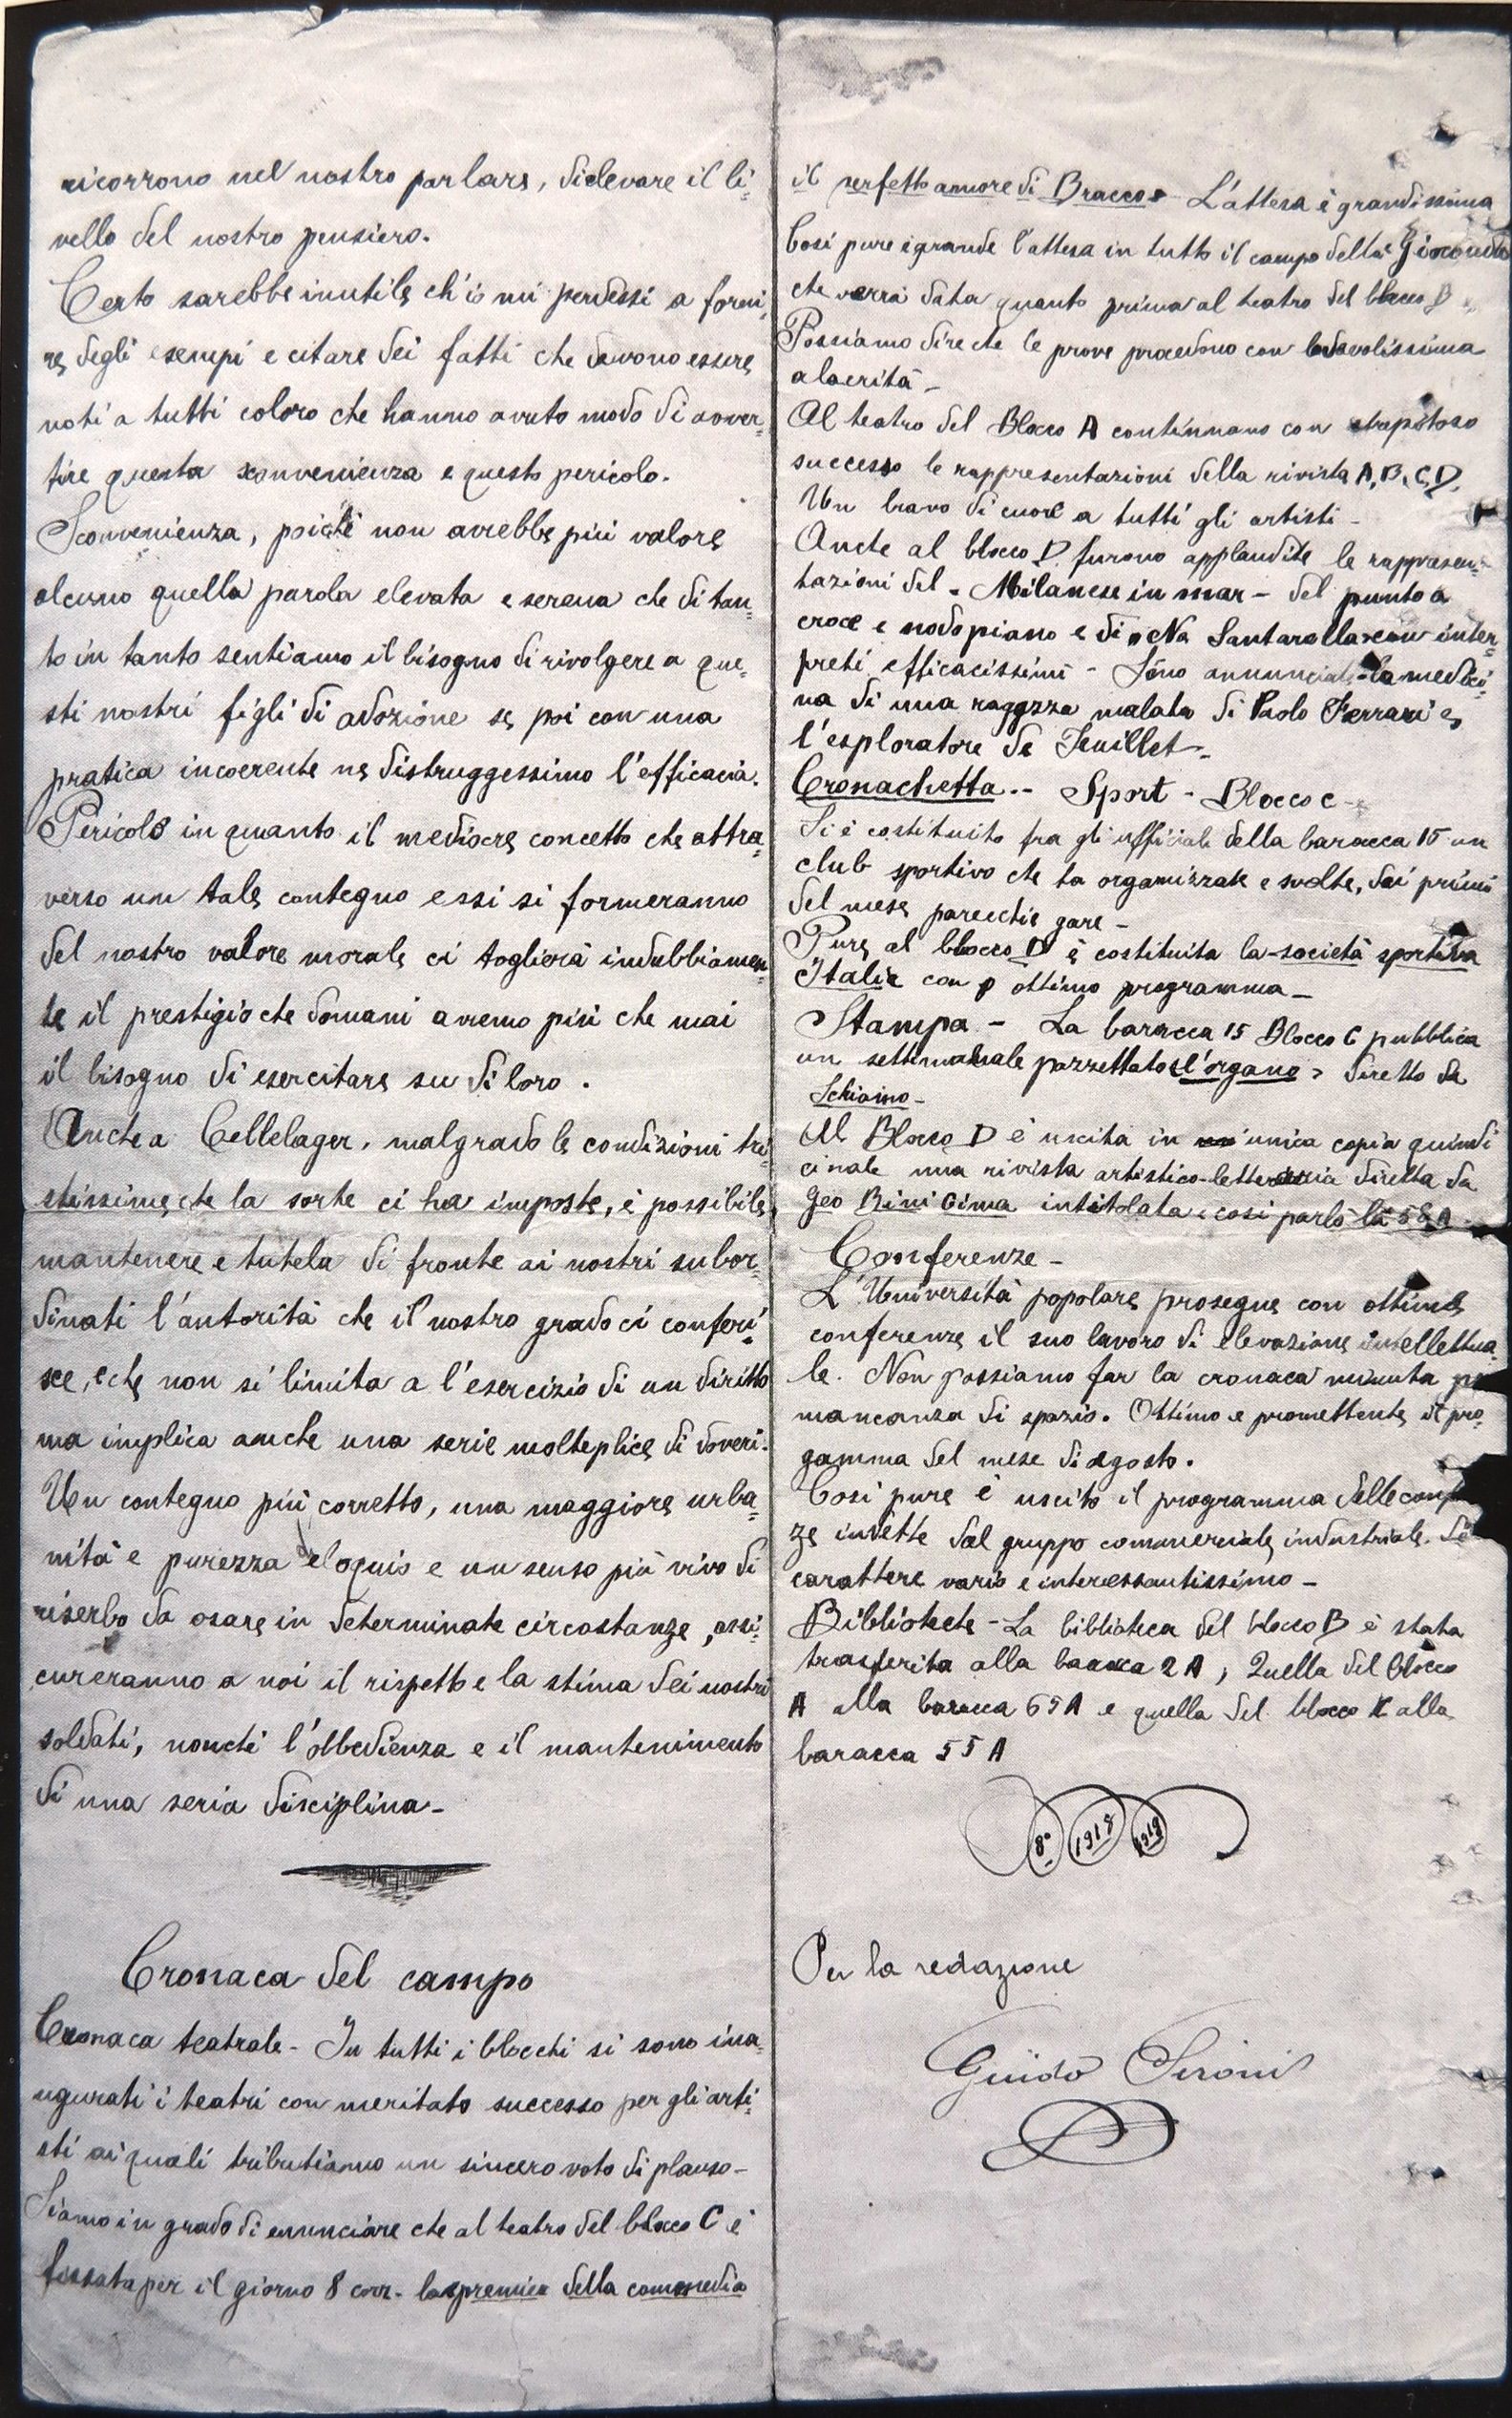 ricorrono nel nostro parlare, di elevare il li=
vello del nostro pensiero.
Certo sarebbe inutile ch'io mi perdessi a forni=
re degli esempi e citare dei fatti che devono essere
noti a tutti coloro che hanno avuto modo di avver=
tire questa sconvenienza e questo pericolo.
Sconvenienza, poiché non avrebbe più valore
alcuno quella parola elevata e serena che di tan=
to in tanto sentiamo il bisogno di rivolgere a que=
sti nostri figli di adozione se poi con una
pratica incoerente ne distruggessimo l'efficacia.
Pericolo in quanto il mediocre concetto che attra=
verso un tale contegno essi si formeranno
del nostro valore morale ci toglierà indubbiamen=
te il prestigio che domani avremo più che mai
il bisogno di esercitare su di loro.
Anche a Cellelager, malgrado le condizioni tri=
stissime che la sorte ci ha imposte, è possibile
mantenere e tutela di fronte ai nostri subor=
dinati l'autorità che il nostro grado ci conferi=
sce, e che non si limita a l'esercizio di un diritto
ma implica anche una serie molteplice di doveri.
Un contegno più corretto, una maggiore urba=
nità e purezza eloquio e un senso più vivo di
riserbo da osare in determinate circostanze, assi=
cureranno a noi il rispetto e la stima dei nostri
soldati, nonché l'obbedienza e il mantenimento
di una seria disciplina-
Cronaca del campo
Cronaca teatrale- In tutti i blocchi si sono ina=
ugurati i teatri con meritato successo per gli arti=
sti ai quali tributiamo un sincero voto di plauso-
Siamo in grado di enunciare che al teatro del blocco C è
fissata per il giorno 8 corr- la premiea della commedia
il perfetto amore di Bracco- L'attesa è grandissima
Così pure è grande l'attesa in tutto il campo della Gioconda
che verrà data quanto prima al teatro del blocco B
Possiamo dire che le prove procedono con lodevolissima
alacrità-
Al teatro del Blocco A continuano con strepitoso
successo le rappresentazioni della rivista A,B,C,D.
Un bravo di cuore a tutti gli artisti-
Anche al blocco D. furono applaudite le rappresen=
tazioni del - Milanese in mar - del punto a
croce e nodo piano e di Na Santarella con inter=
preti efficacissimi - Sono annunciate la medici=
na di una ragazza malata di Paolo Ferrari e
l'esploratore de Feuillet-
Cronachetta.- Sport - Blocco C-
Si è costituito fra gli ufficiali della baracca 15 un
club sportivo che ha organizzate e svolte, dai primi
del mese parecchie gare-
Pure al blocco D è costituita la società sportiva
Italia con ottimo programma-
Stampa - La baracca 15 Blocco C pubblica
un settimanale pazzettato l'organo > diretto da
Schiavino-
Al Blocco D è uscita in unica copia quindi
cinale una rivista artistico-letteraria diretta da
Geo Bini Cima intitolata: così parlò la 58A
Conferenze-
L'Università popolare prosegue con ottime
conferenze il suo lavoro di elevazione intellettua=
le. Non possiamo far la cronaca minuta
mancanza di spazio. Ottimo e promettente il pro=
gamma del mese di agosto.
Così pure è uscito il programma delle
ze indette dal gruppo commerciale industriale. Di
carattere vario e interessantissimo-
Biblioteche - La biblioteca del blocco B è stata
trasferita alla baracca 2A, Quella del blocco
A alla baracca 65A e quella del blocco alla
baracca 55A
8° 1918 1918
Per la redazione
Guido Sironi